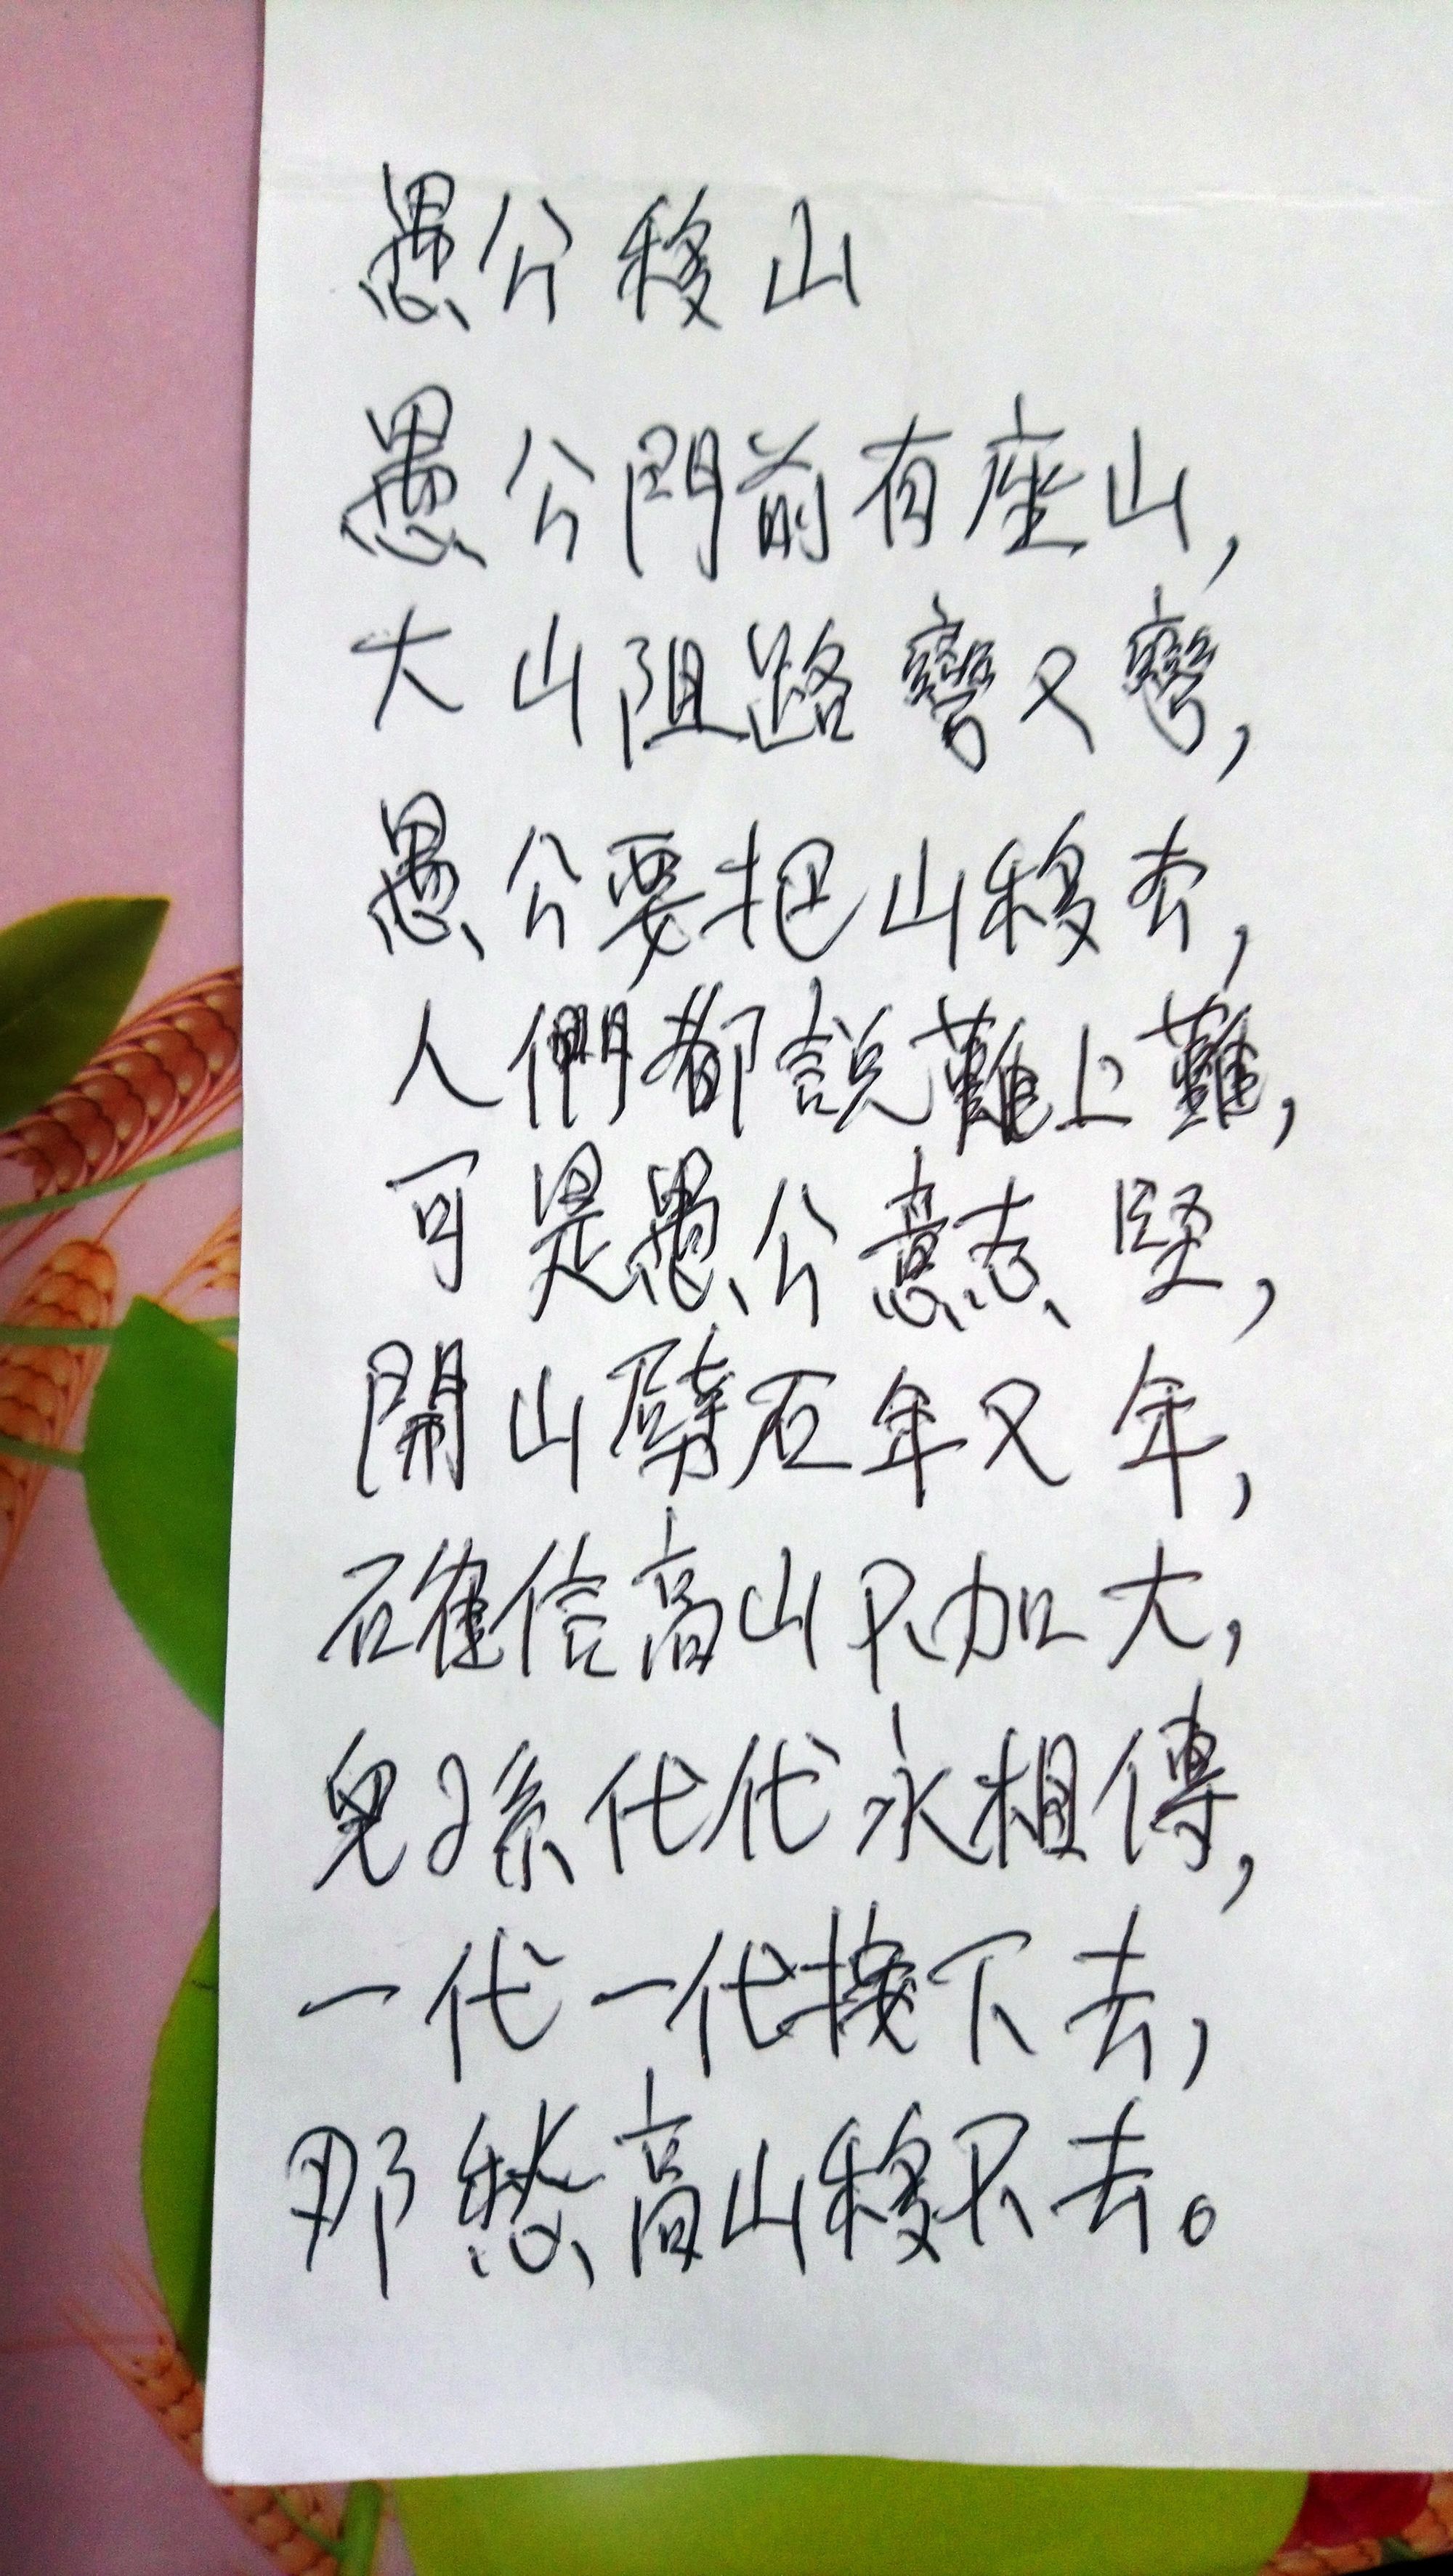 愚公移山
愚公門前有座山,
大山阻路彎又彎,
愚公要把山移去,
人們都説難上難,
可是愚公意志堅,
開山劈石年又年,
確信高山不加大,
兒孫代代永相傳,
一代一代接下去,
那愁高山移不去。